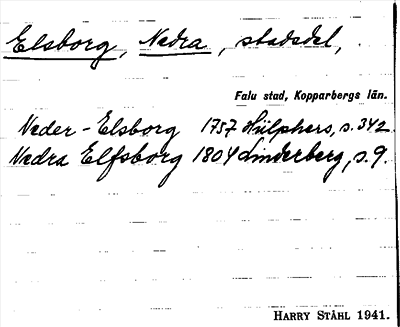 Elsborg, Nedra, stadsdel,
Falu stad, Kopparbergs län.
Neder-Elsborg 1757 Hülphers, s. 342.
Nedra Elfsborg 1804 Linderberg, s. 9.
HARRY STÅHL 1941.